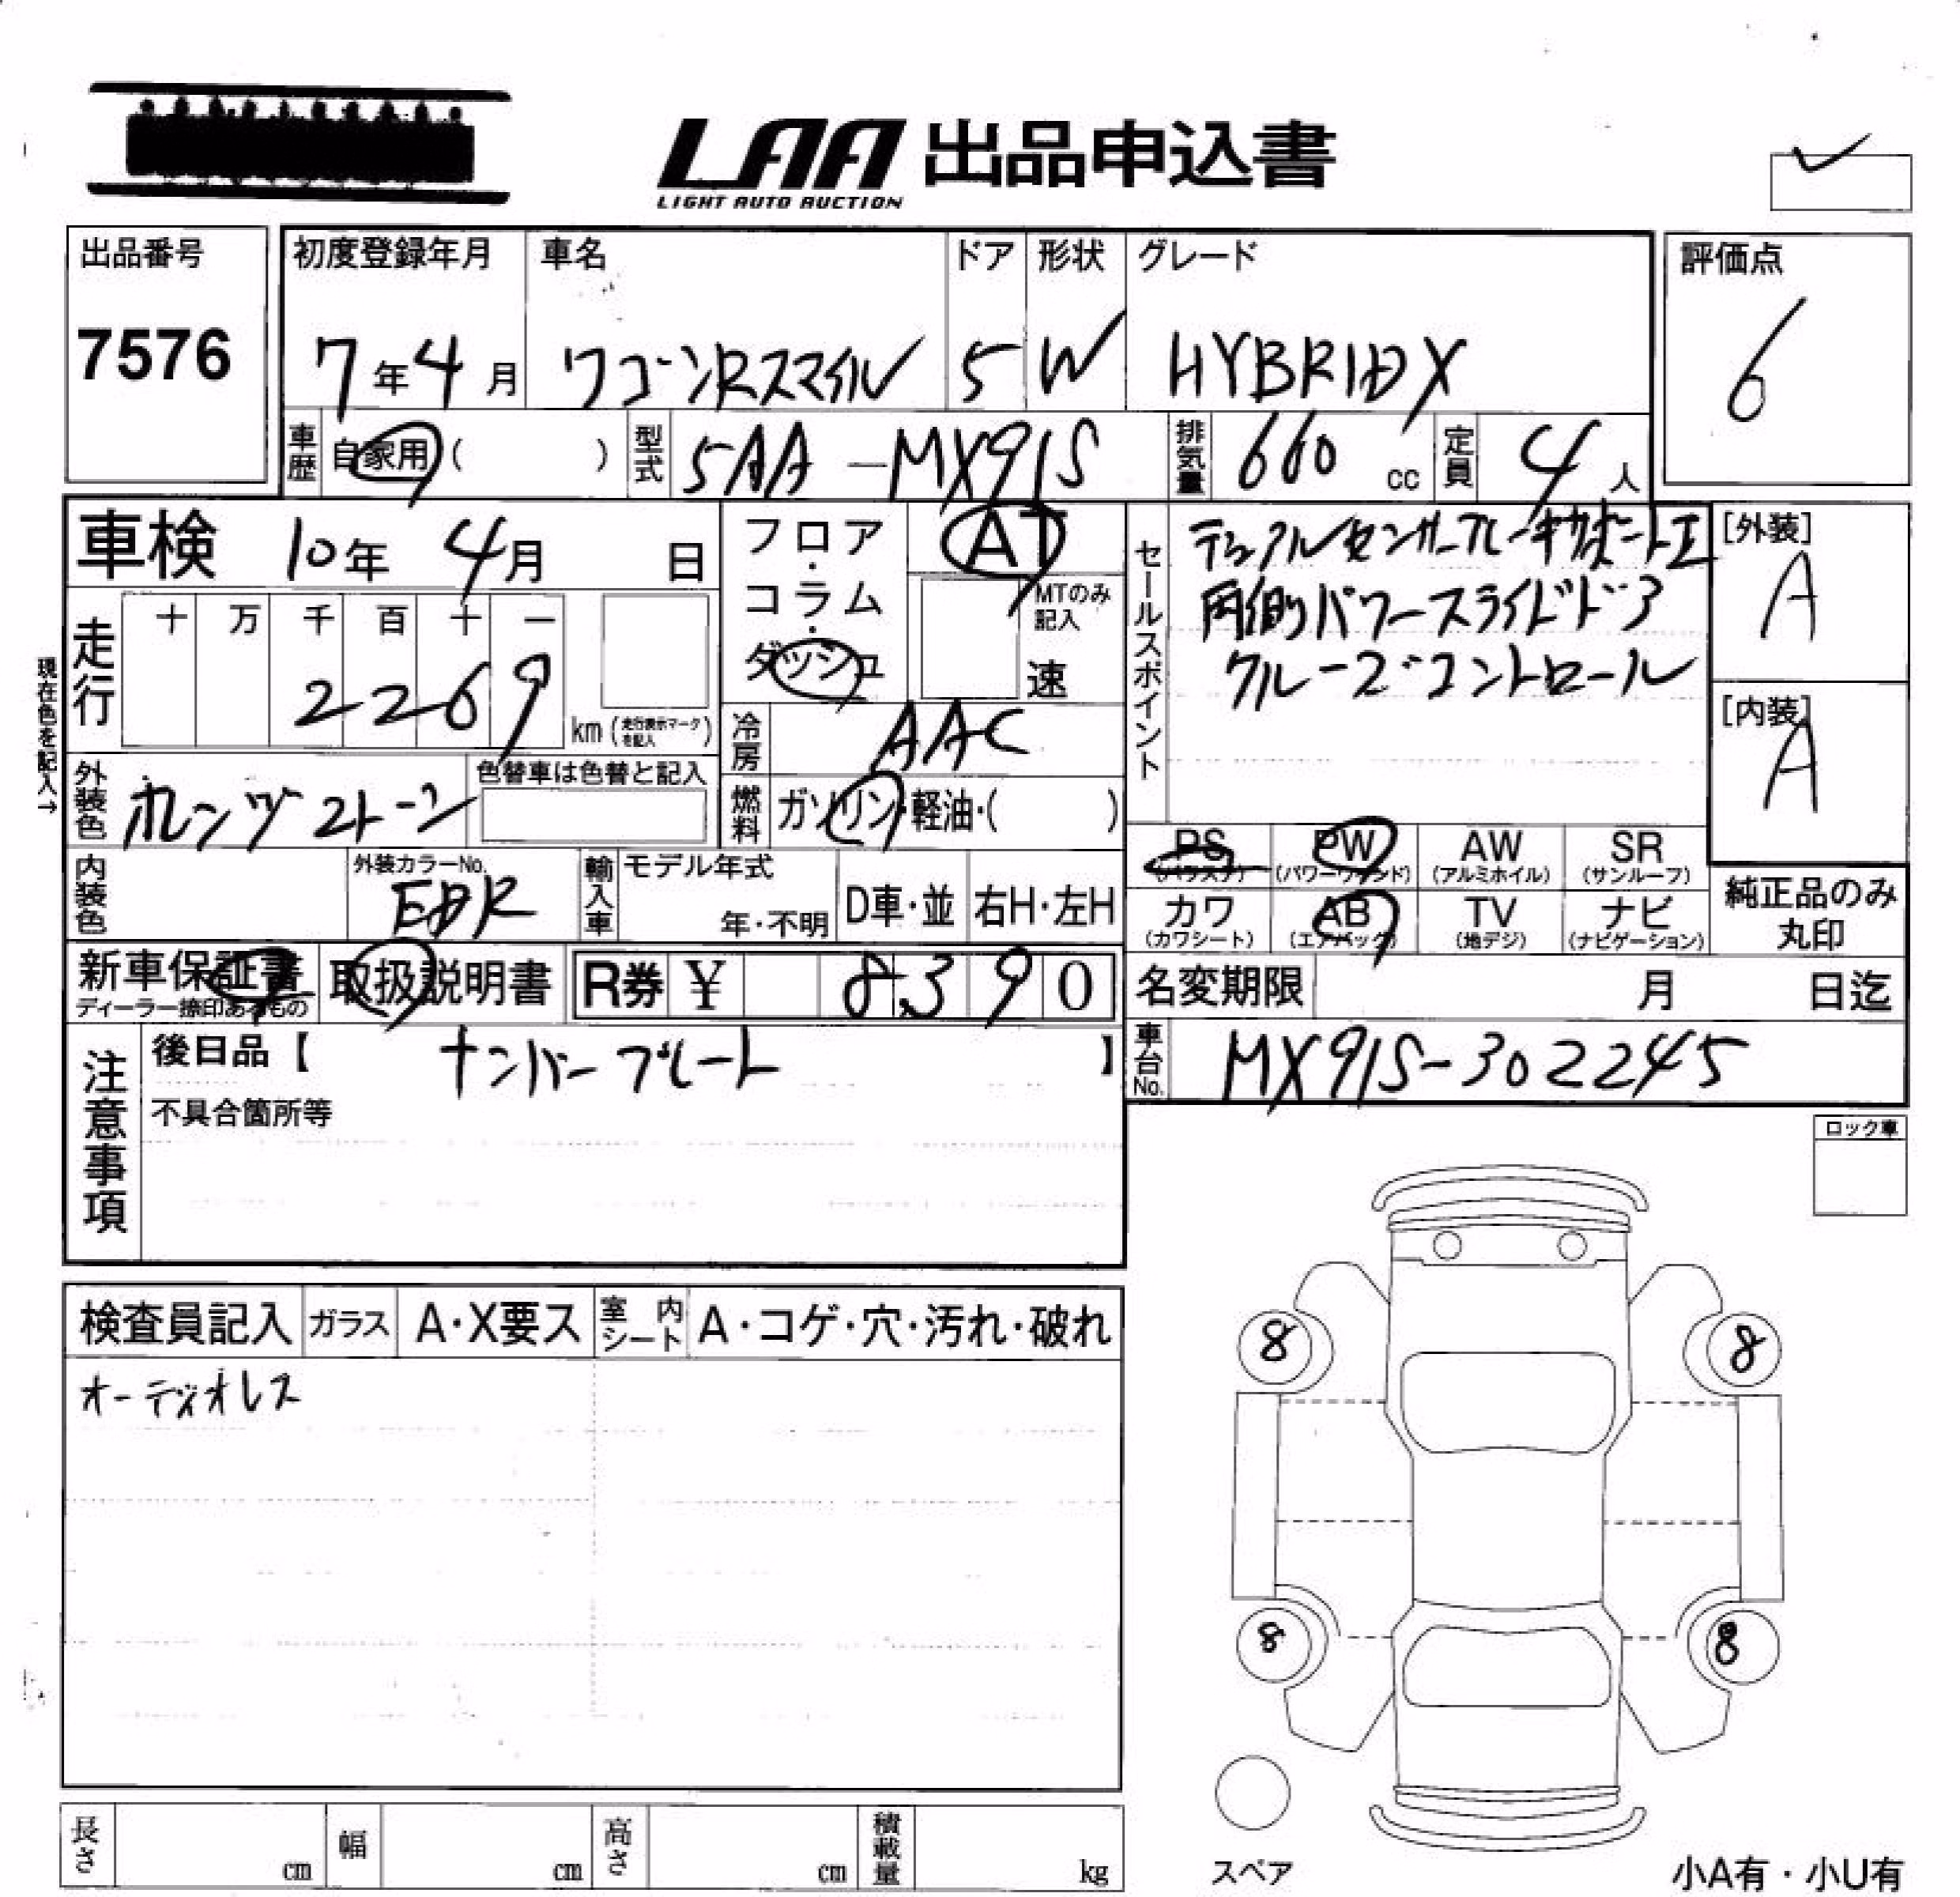 LAA 出品申込書
LIGHT AUTO AUCTION
出品番号
7576
初度登録年月
7年4月
車名
ワゴンRスマイル
ドア
5
形状
W
グレード
HYBRID X
評価点
6
車歴
自家用( )
型式
5AA-MX91S
排気量
660 cc
定員
4人
車検 10年 4月 日
フロア・コラム・ダッシュ
AT
MTのみ記入
速
セールスポイント
デュアルセンサーブレーキサポートⅡ
両側パワースライドドア
クルーズコントロール
[外装]
A
[内装]
A
現在色を記入→
走行
十 万 千 百 十 一
2269
km(走行表示マークを記入)
冷房
AAC
外装色
オレンジ2トーン
色替車は色替と記入
燃料
ガソリン・軽油・( )
PS
(パワステ)
PW
(パワーウィンド)
AW
(アルミホイル)
SR
(サンルーフ)
カワ
(カワシート)
AB
(エアバック)
TV
(地デジ)
ナビ
(ナビゲーション)
純正品のみ
丸印
内装色
外装カラーNo.
EDR
輸入車
モデル年式
年・不明
D車・並
右H・左H
新車保証書
ディーラー捺印あるもの
取扱説明書
R券 ¥ 8,390
名変期限 月 日迄
注意事項
後日品【 ナンバープレート 】
不具合箇所等
車台No.
MX91S-302245
ロック車
検査員記入
ガラス
A・X要ス
室内シート
A・コゲ・穴・汚れ・破れ
オーディオレス
8
8
8
8
スペア
長さ cm
幅 cm
高さ cm
積載量 kg
小A有・小U有